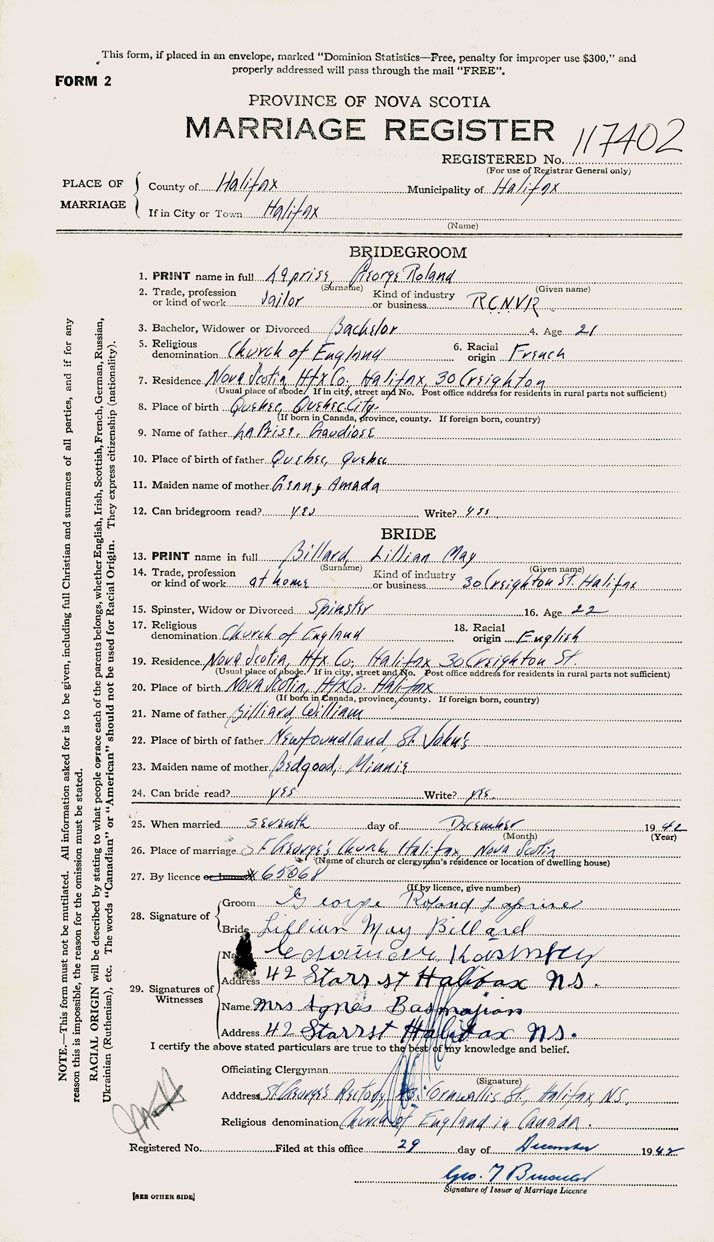 This form, if placed in an envelope, marked "Dominion Statistics—Free, penalty for improper use $300," and
properly addressed will pass through the mail "FREE".
FORM 2
PROVINCE OF NOVA SCOTIA
MARRIAGE REGISTER
REGISTERED No. 117402
(For use of Registrar General only)
PLACE OF MARRIAGE
County of Halifax Municipality of Halifax
If in City or Town Halifax
(Name)
BRIDEGROOM
1. PRINT name in full Laprise, George Roland
(Surname) (Given name)
2. Trade, profession or kind of work Sailor Kind of industry or business R.C.N.V.R.
3. Bachelor, Widower or Divorced Bachelor 4. Age 21
5. Religious denomination Church of England 6. Racial origin French
7. Residence Nova Scotia, Hfx Co. Halifax, 30 Creighton
(Usual place of abode. If in city, street and No. Post office address for residents in rural parts not sufficient)
8. Place of birth Quebec, Quebec City
(If born in Canada, province, county. If foreign born, country)
9. Name of father LaPrise, Gaudiose
10. Place of birth of father Quebec, Quebec
11. Maiden name of mother Amada
12. Can bridegroom read? yes Write? yes
BRIDE
13. PRINT name in full Billard, Lillian May
(Surname) (Given name)
14. Trade, profession or kind of work at home Kind of industry or business 30 Creighton St. Halifax
15. Spinster, Widow or Divorced Spinster 16. Age 22
17. Religious denomination Church of England 18. Racial origin English
19. Residence Nova Scotia, Hfx Co. Halifax 30 Creighton St.
(Usual place of abode. If in city, street and No. Post office address for residents in rural parts not sufficient)
20. Place of birth Nova Scotia, Hfx Co. Halifax
(If born in Canada, province, county. If foreign born, country)
21. Name of father Billiard, William
22. Place of birth of father Newfoundland, St John's
23. Maiden name of mother Bedgood, Minnie
24. Can bride read? yes Write? yes.
25. When married seventh day of December 1942
(Month) (Year)
26. Place of marriage St George's Church, Halifax, Nova Scotia
(Name of church or clergyman's residence or location of dwelling house)
27. By licence or banns 65068
(If by licence, give number)
28. Signature of
Groom George Roland Laprise
Bride Lillian May Billard
29. Signatures of Witnesses
Name
Address 42 Starr st Halifax N.S.
Name Mrs Agnes Basmajian
Address 42 Starr st Halifax N.S.
I certify the above stated particulars are true to the best of my knowledge and belief.
Officiating Clergyman
(Signature)
Address St. George's Rectory, Cornwallis St., Halifax, N.S.
Religious denomination Church of England in Canada.
Registered No. Filed at this office 29 day of December 1942
Geo. T
Signature of Issuer of Marriage Licence
[SEE OTHER SIDE]
NOTE.—This form must not be mutilated. All information asked for is to be given, including full Christian and surnames of all parties, and if for any
reason this is impossible, the reason for the omission must be stated.
RACIAL ORIGIN will be described by stating to what people or race each of the parents belongs, whether English, Irish, Scottish, French, German, Russian,
Ukrainian (Ruthenian), etc. The words "Canadian" or "American" should not be used for Racial Origin. They express citizenship (nationality).